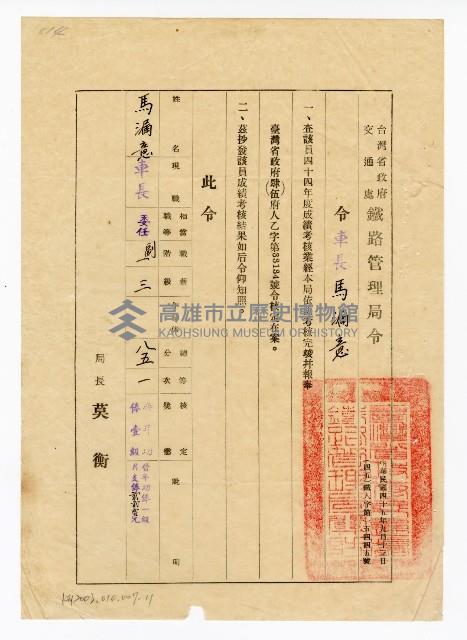 台灣省政府
交通處
鐵路管理局令
中華民國四十五年九月十三日
(四五)鐵人字第一五四四五號
令 車長 馬滿意
一、查該員四十四年度成績考核業經本局依法考核完竣幷報奉
臺灣省政府肆伍府人乙字第88184號令核定在案。
二、茲抄發該員成績考核結果如后令仰知照。
此令
姓名 現職 相當職等 職階 薪級 總分 等次 核定獎懲 說明
馬滿意 車長 委任 副 一 三 八五 一
晉年功俸一級
局長 莫衡
高雄市立歷史博物館
KAOHSIUNG MUSEUM OF HISTORY
KH2003.014.007-11
014